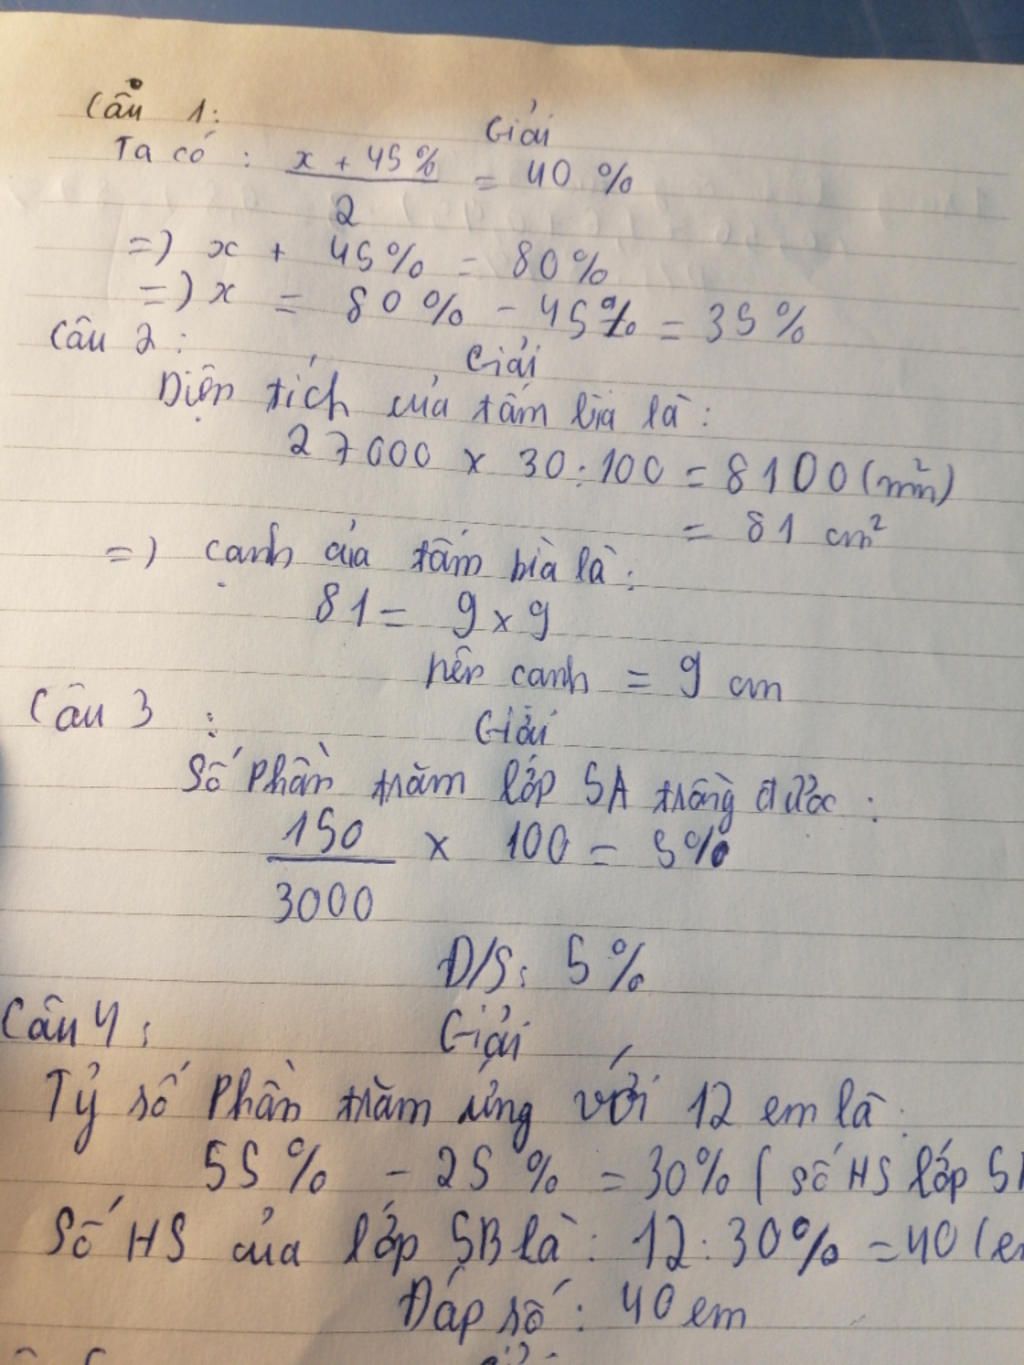 Câu 1:
Giải
Ta có : x + 45% / 2 = 40 %
=) x + 45% = 80%
=) x = 80% - 45% = 35%
Câu 2 :
Giải
Diện tích của tấm bìa là :
27000 x 30 : 100 = 8100 (mm²)
= 81 cm²
=) cạnh của tấm bìa là :
81 = 9 x 9
nên canh = 9 cm
Câu 3 :
Giải
Số Phần trăm lớp 5A trồng được :
150 / 3000 x 100 = 5%
Đ/S: 5%
Câu 4 :
Giải
Tỷ số Phần trăm ứng với 12 em là :
55% - 25% = 30% ( số HS lớp 5
Số HS của lớp 5B là : 12 : 30% = 40 (e
Đáp số : 40 em